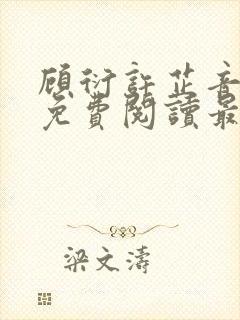 顾衍許芷音
免費閱讀最
梁文濤